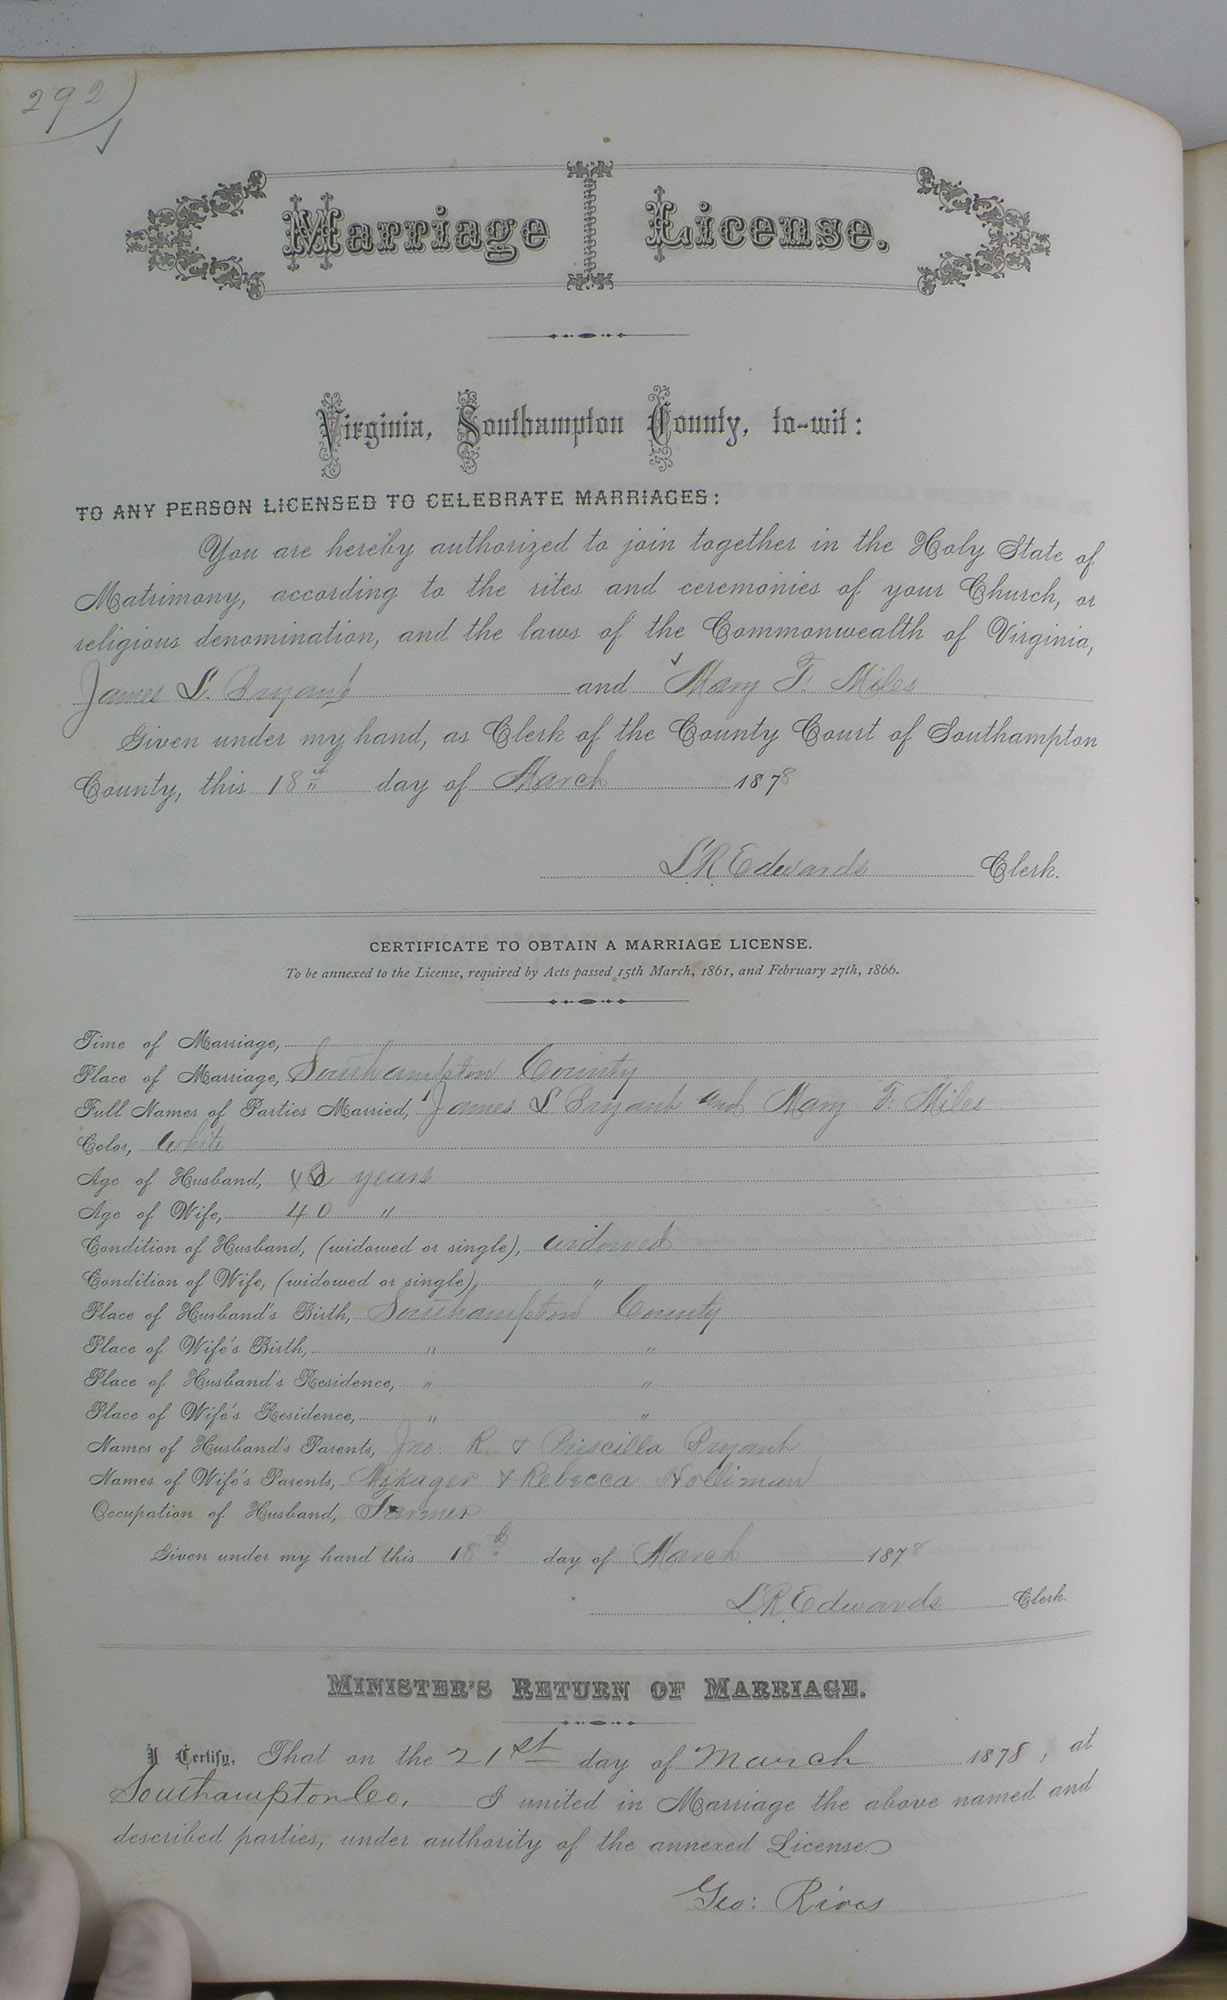 292
Marriage License.
Virginia, Southampton County, to-wit:
TO ANY PERSON LICENSED TO CELEBRATE MARRIAGES:
You are hereby authorized to join together in the Holy State of
Matrimony, according to the rites and ceremonies of your Church, or
religious denomination, and the laws of the Commonwealth of Virginia,
James S. Bryant and Mary F. Miles
Given under my hand, as Clerk of the County Court of Southampton
County, this 18th day of March 1878
L.R. Edwards Clerk.
CERTIFICATE TO OBTAIN A MARRIAGE LICENSE.
To be annexed to the License, required by Acts passed 15th March, 1861, and February 27th, 1866.
Time of Marriage,
Place of Marriage, Southampton County
Full Names of Parties Married, James S Bryant and Mary F. Miles
Color, White
Age of Husband, years
Age of Wife, 40 "
Condition of Husband, (widowed or single), widowed
Condition of Wife, (widowed or single), "
Place of Husband's Birth, Southampton County
Place of Wife's Birth, " "
Place of Husband's Residence, " "
Place of Wife's Residence, " "
Names of Husband's Parents, Jno. R. & Priscilla Bryant
Names of Wife's Parents, & Rebecca Holliman
Occupation of Husband, Farmer
Given under my hand this 18th day of March 1878
L.R. Edwards Clerk.
MINISTER'S RETURN OF MARRIAGE.
I Certify, That on the 21st day of March 1878, at
Southampton Co, I united in Marriage the above named and
described parties, under authority of the annexed License
Geo: Rives